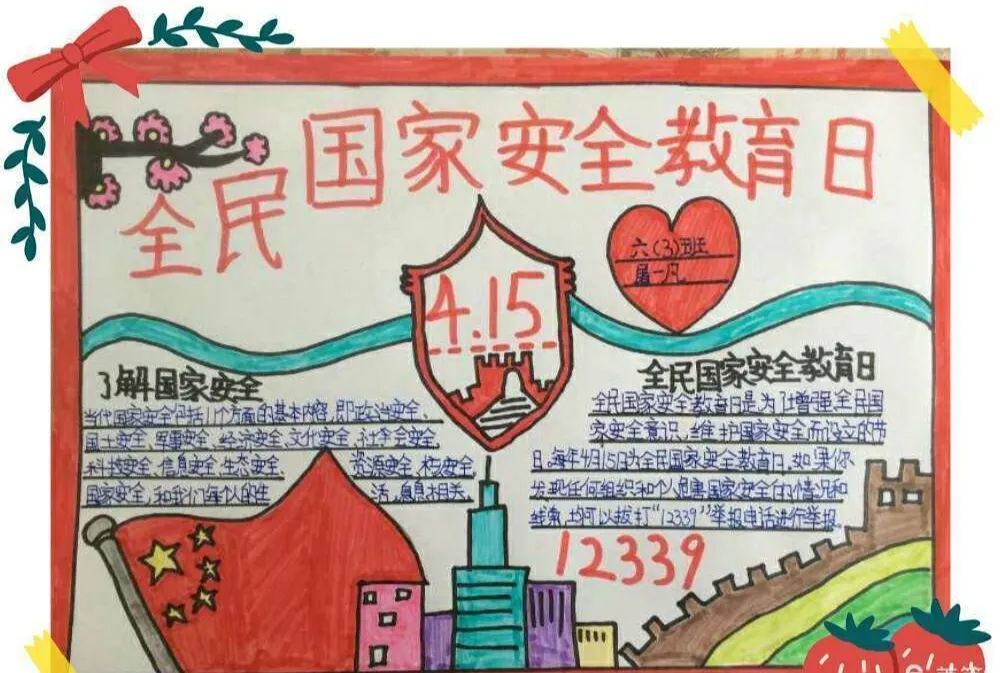 全民国家安全教育日
六(3)班
屠一凡
4.15
了解国家安全
当代国家安全包括11个方面的基本内容,即政治安全、
国土安全、军事安全、经济安全、文化安全、社会安全、
科技安全、信息安全、生态安全、资源安全、核安全
国家安全,和我们每个人的生活,息息相关。
全民国家安全教育日
全民国家安全教育日是为了增强全民国
家安全意识,维护国家安全而设立的节
日。每年4月15日为全民国家安全教育日,如果你
发现任何组织和个人危害国家安全的情况和
线索,均可以拔打“12339”举报电话进行举报。
12339